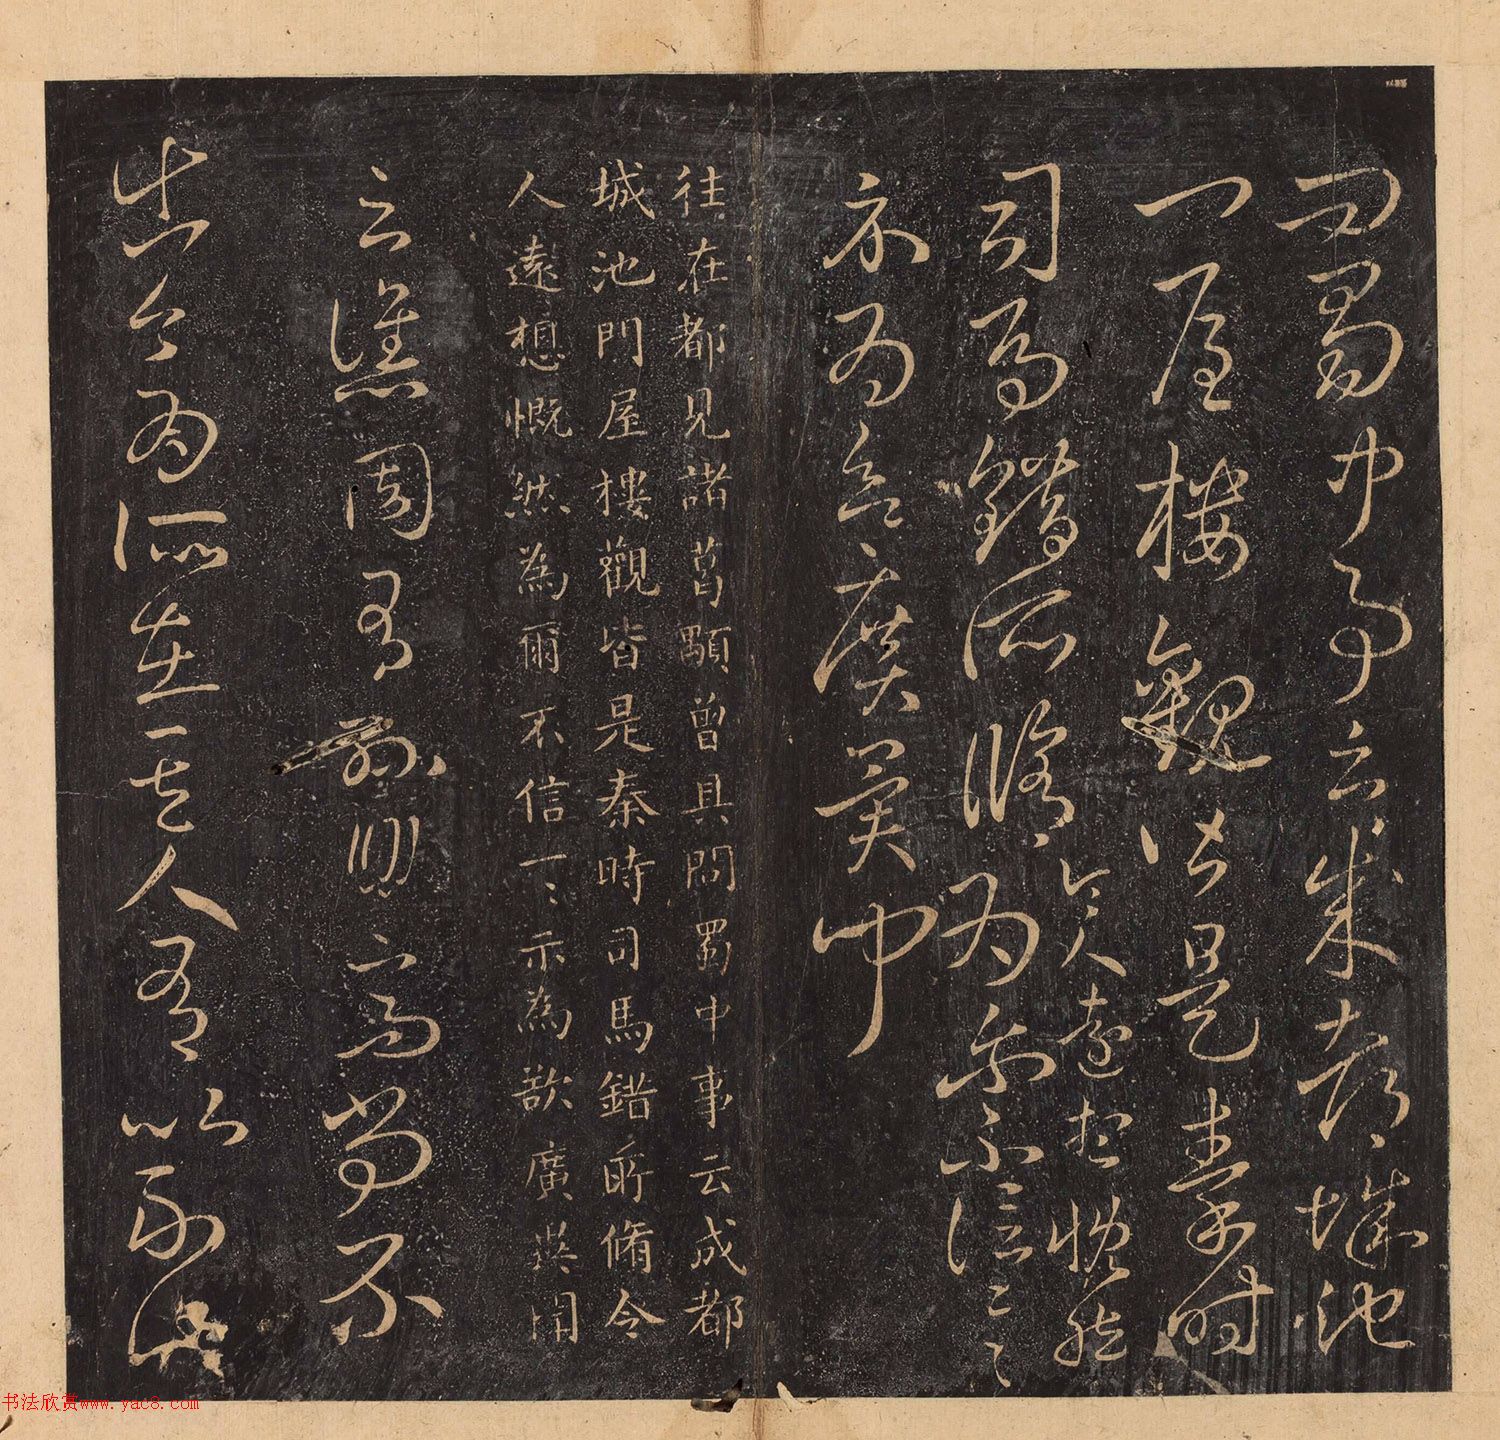 問蜀中事云成都城池
門屋樓觀皆是秦時
司馬錯所脩令人遠想慨然
為爾不信一一
示為欲廣異聞
往在都見諸葛顒曾具問蜀中事云成都
城池門屋樓觀皆是秦時司馬錯所脩令
人遠想慨然為爾不信一〻示為欲廣異聞
云譙周有孫高尚不
出今為所在其人有以副此
书法欣赏www.yac8.com